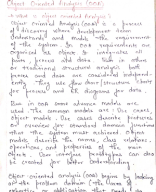 Object Oriented Analysis (OOA)
* What is object oriented Analysis?
Object Oriented Analysis (OOA) is a process
of discovery where development team
understands and models the requirements
of the system. In OOA requirements are
organized as objects. It integrates all
process and data. But in other
or traditional structured analysis both
process and data are considered independ-
ently. They use flow chart/structure charts
for process and ER diagrams for data.
But in OOA some advance models are
used. The common models are: Use cases,
object models. Use cases describe patterns
or overview for standard domain functions
that the system must achieved. Object
models, describe the names, class relations,
operations, and properties of the main
object. User-interface prototypes can also
be created for better understanding.
Object oriented analysis begins by looking
at the problem domain (the